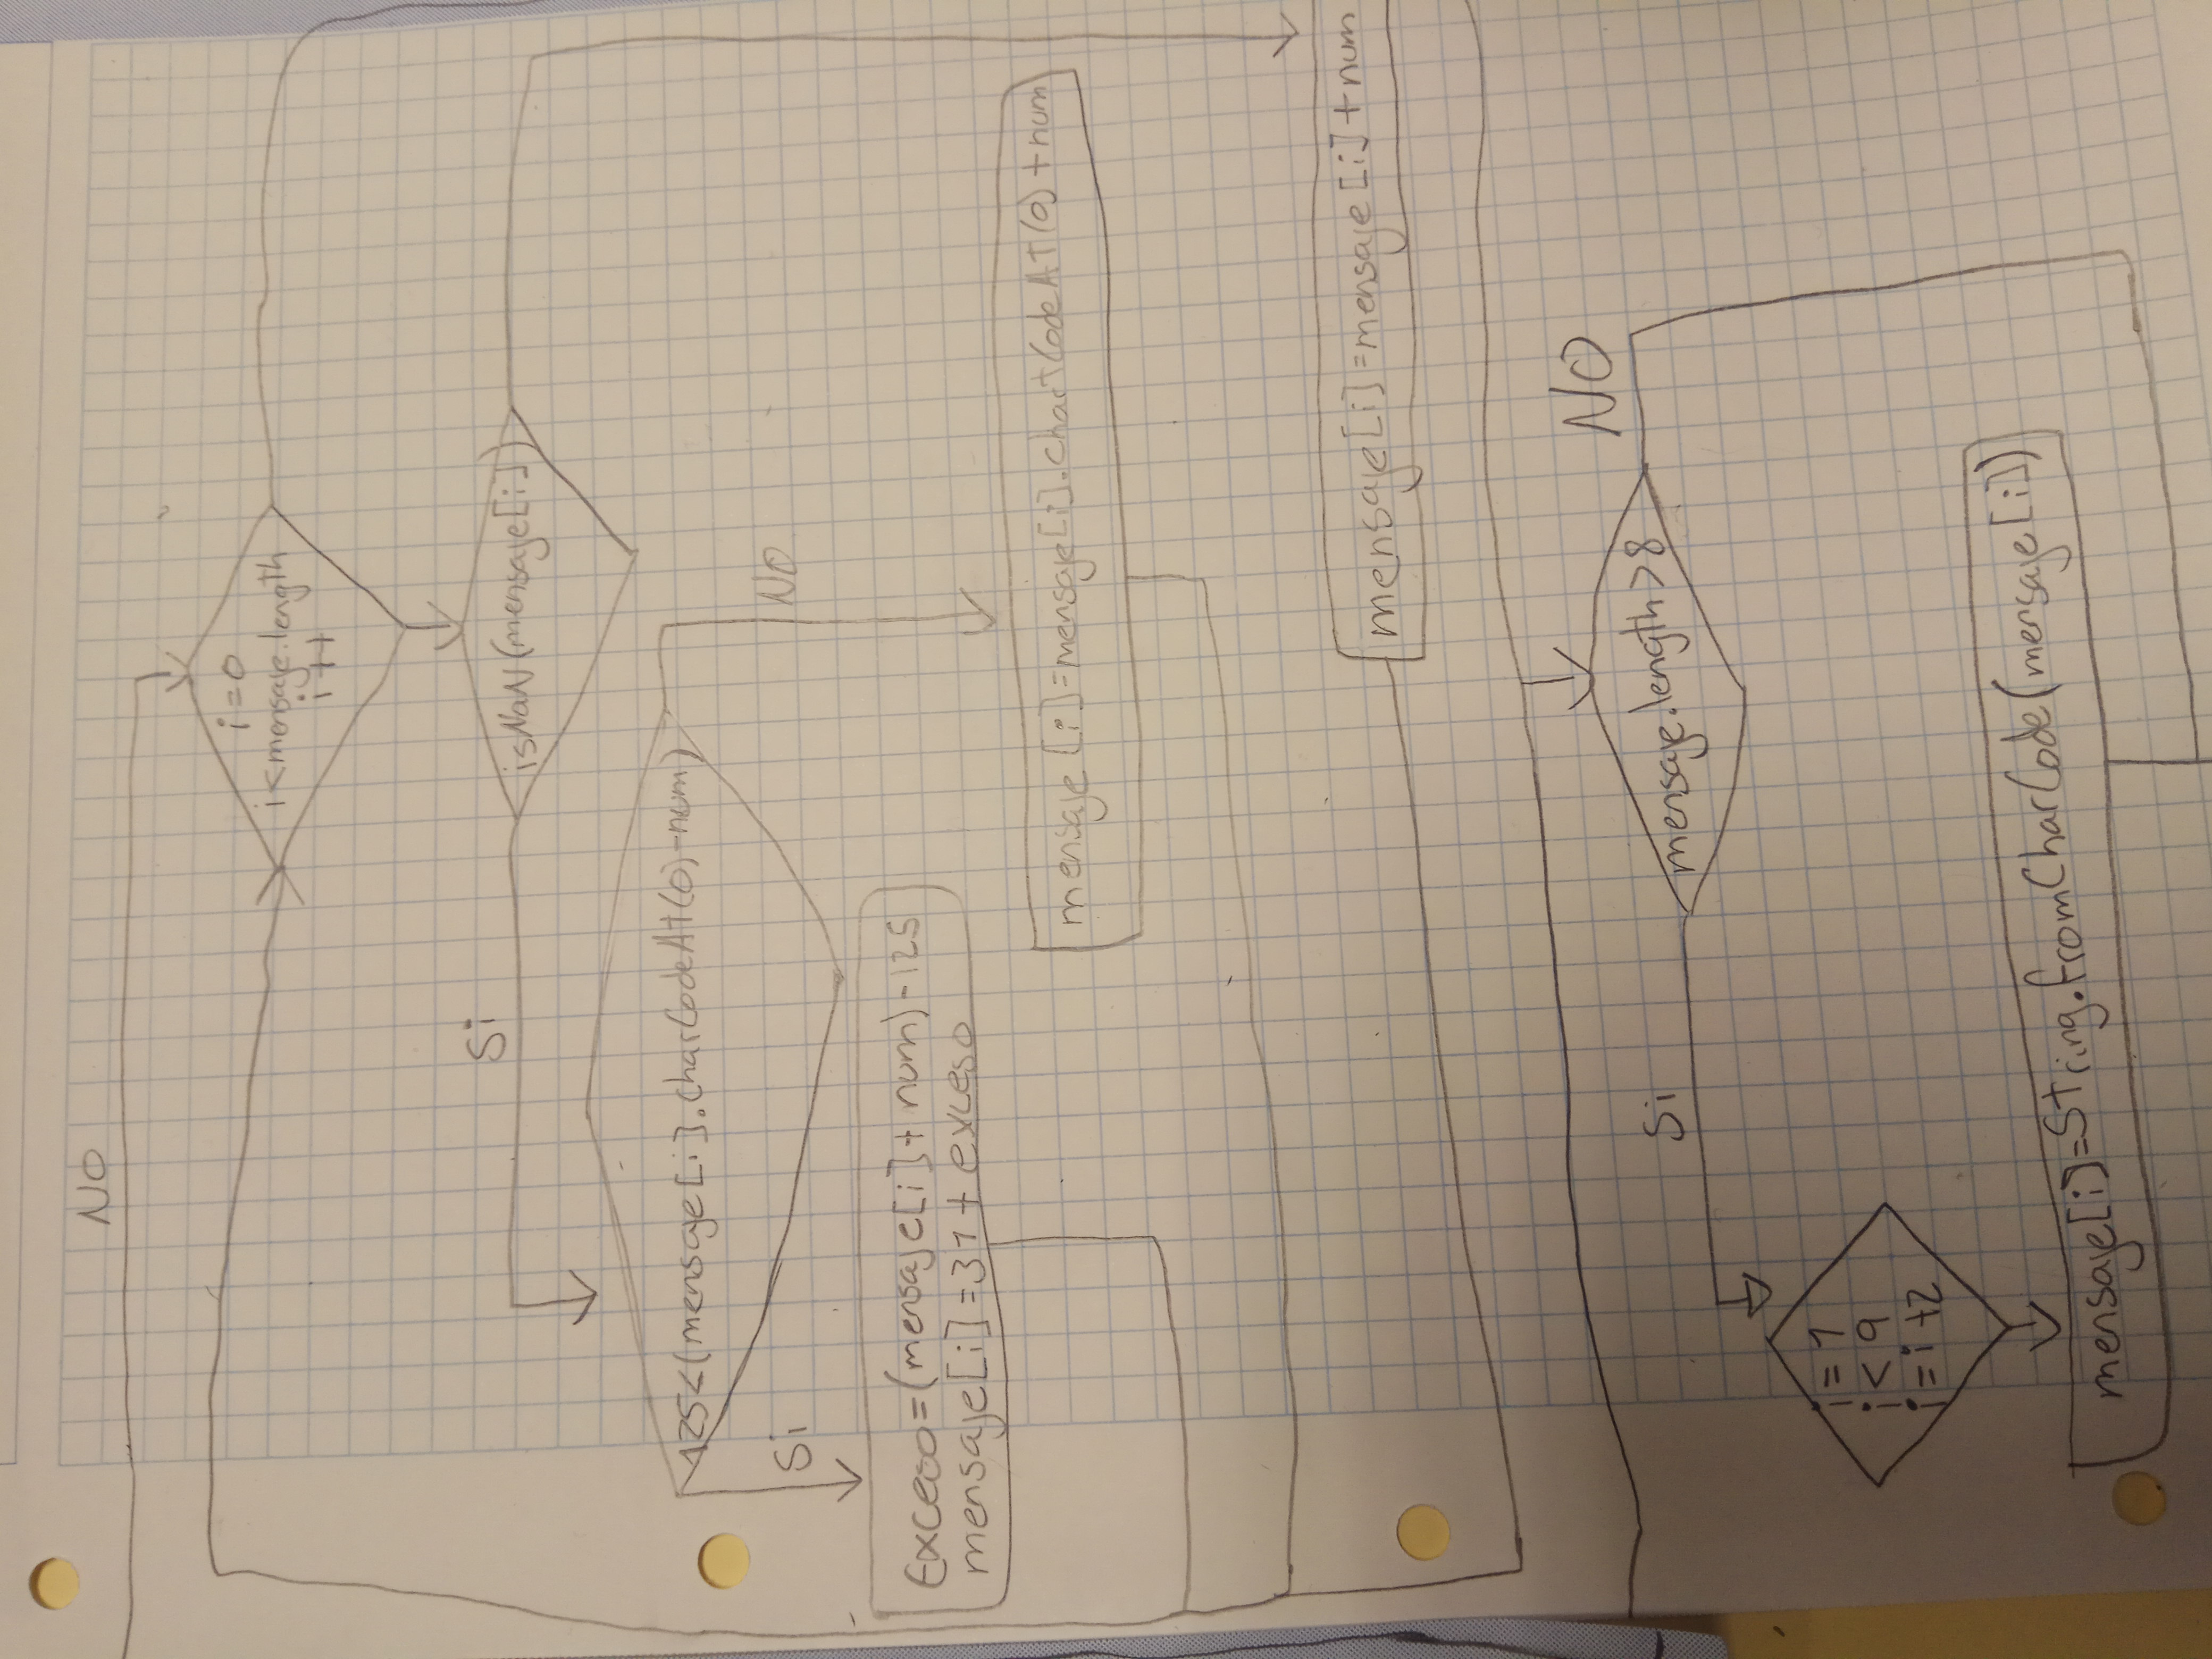 NO
i=0
i<mensaje.length
i++
isNaN(mensaje[i])
Si
125<(mensaje[i].charCodeAt(0)-num)
NO
Si
Exceso=(mensaje[i]+num)-125
mensaje[i]=31+exceso
mensaje[i]=mensaje[i].chartCodeAT(0)+num
mensaje[i]=mensaje[i]+num
mensaje.length>8
NO
Si
i=1
i<9
i=i+2
mensaje[i]=String.fromCharCode(mensaje[i])